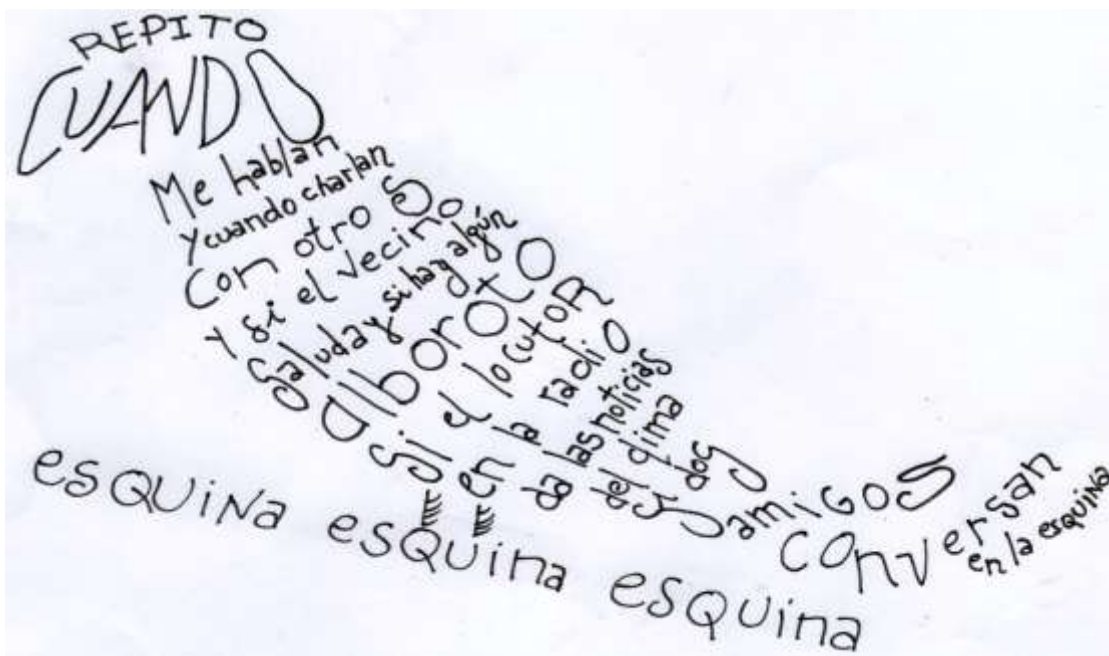 REPITO
CUANDO
Me hablan
y cuando charlan
Con otro So
y si el vecino
Saluda y si hay algún
alboroto
si el locutor
en la radio
da las noticias
del clima
y dos
amigos
conversan
en la esquina
esquina esquina esquina